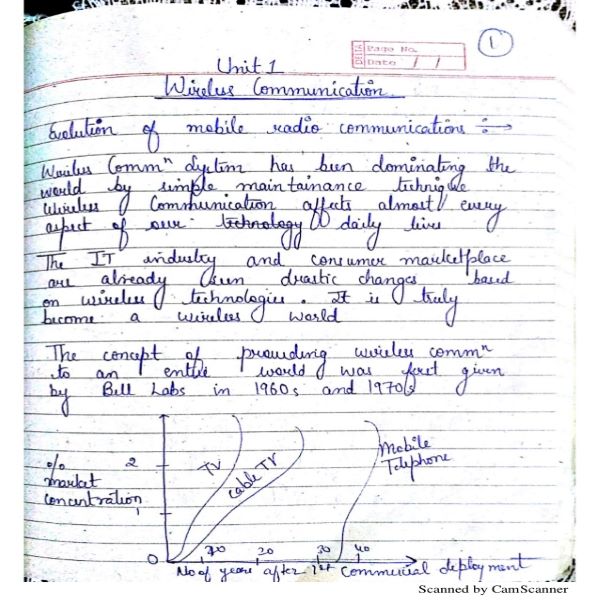 1
DELTA Page No.
Date / /
Unit 1
Wireless Communication
Evolution of mobile radio communications ÷→
Wireless Commⁿ System has been dominating the
world by simple maintainance technique
Wireless Communication affects almost every
aspect of our technology daily lives
The IT industry and consumer marketplace
are already seen drastic changes based
on wireless technologies. It is truly
become a wireless world
The concept of providing wireless commⁿ
to an entire world was first given
by Bell Labs in 1960s and 1970s
% market concentration
2
1
0
TV
Cable TV
Mobile
Telephone
10 20 30 40
No of years after 1st Commercial deployment
Scanned by CamScanner